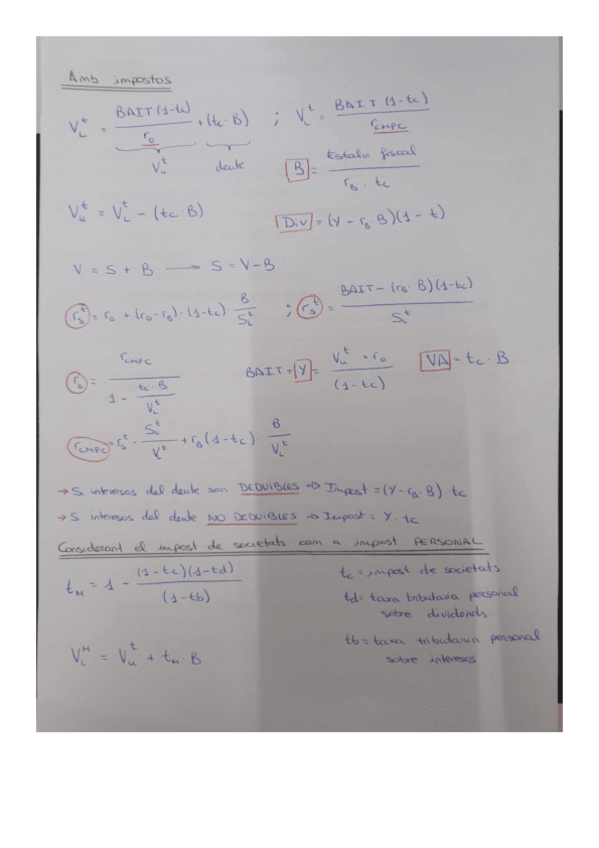 Amb impostos
V_L^t = BAIT(1-tc) / r_0 + (tc·B) ; V_L^t = BAIT(1-tc) / r_CMPC
V_u^t deute
B = Estalvi fiscal / r_B · tc
V_u^t = V_L^t - (tc·B)
Div = (Y - r_B·B)(1-t)
V = S + B → S = V-B
r_s^t = r_0 + (r_0-r_B)·(1-tc)· B / S_L^t ; r_s^t = BAIT-(r_B·B)(1-tc) / S_L^t
r_0 = r_CMPC / 1 - tc·B / V_L^t
BAIT = Y = V_u^t · r_0 / (1-tc)
VA = tc·B
r_CMPC = r_s^t · S_L^t / V_L^t + r_B(1-tc) · B / V_L^t
→ Si interesos del deute son DEDUIBLES ⇒ Impost = (Y-r_B·B)·tc
→ Si interesos del deute NO DEDUIBLES ⇒ Impost = Y·tc
Considerant el impost de societats com a impost PERSONAL
t_M = 1 - (1-tc)(1-td) / (1-tb)
tc = impost de societats
td = taxa tributaria personal
sobre dividends
tb = taxa tributaria personal
sobre interesos
V_L^M = V_u^t + t_M·B